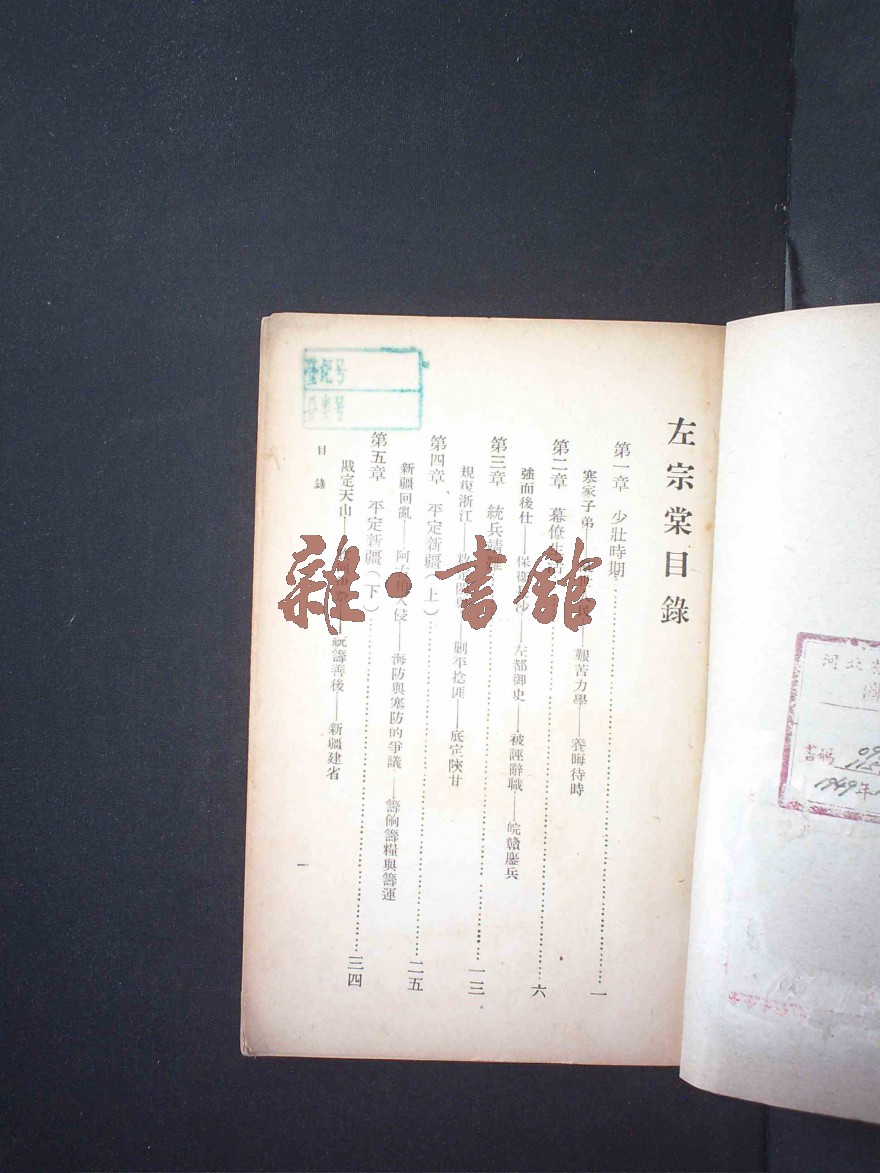 左宗棠目錄
第一章 少壯時期……一
寒家子弟——艱苦力學——養晦待時
第二章 幕僚……六
強而後仕——保衛 沙——左都御史——被誣辭職——皖贛鏖兵
第三章 統兵……一三
規復浙江——剿平捻匪——底定陝甘
第四章 平定新疆(上)……二五
新疆回亂——阿 入侵——海防與塞防的爭議——籌餉籌糧與籌運
第五章 平定新疆(下)……三四
戡定天山——統籌善後——新疆建省
目錄
一
登記号
雜·書館
河北
書碼
1949年